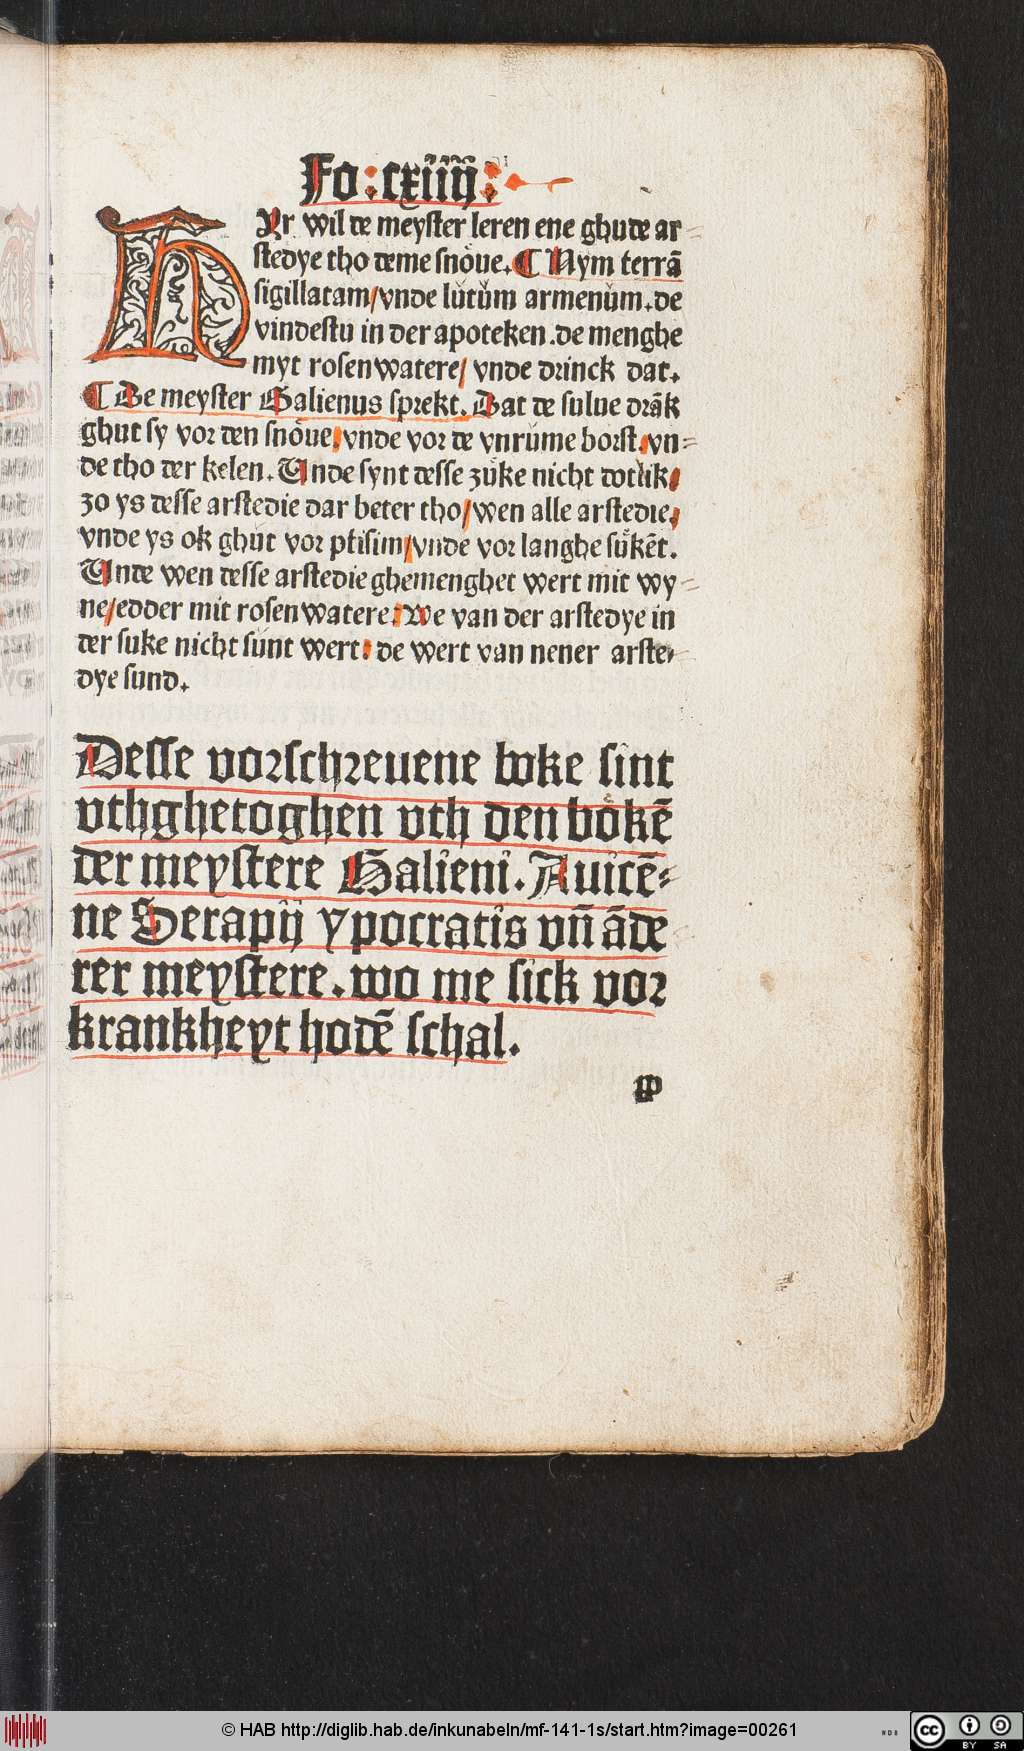 Fo: cxiiij:
HJr wil de meyster leren ene ghude ar⸗
stedye tho deme snoͤue. ¶ Nym terrā
sigillatam/vnde luͤtuͤm armenuͤm. de
vindestu in der apoteken. de menghe
myt rosen watere/ vnde drinck dat.
¶ De meyster Galienus sprekt. Dat de sulue drāk
ghut sy vor den snoͤue/vnde vor de vnruͤme borst/vn⸗
de tho der kelen. Unde synt desse zuͤke nicht dotlik/
zo ys desse arstedie dar beter tho/wen alle arstedie/
vnde ys ok ghuͤt vor ptisim/vnde vor langhe suͤkēt.
Unde wen desse arstedie ghemenghet wert mit wy⸗
ne/edder mit rosen watere: We van der arstedye in
der suke nicht suͤnt wert: de wert van nener arste⸗
dye sund.
Desse vorschreuene boke sint
vthghetoghen vth den boͤkē
der meystere Galieni. Auicē⸗
ne Serapij ypocratis vn̄ āde
rer meystere. wo me sick vor
krankheyt hodē schal.
p
© HAB http://diglib.hab.de/inkunabeln/mf-141-1s/start.htm?image=00261
WDB
cc BY SA